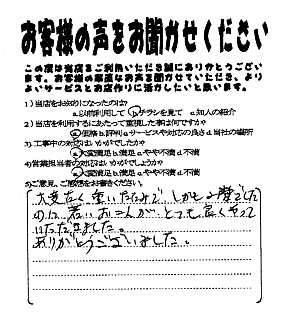 お客様の声をお聞かせください
この度は当店をご利用いただき誠にありがとうござい
ます。お客様の率直なお声を聞かせていただき、より
よいサービスとお店作りに活かしたいと思います。
1)当店をお知りになったのは?
a以前利用して bチラシを見て c知人の紹介
2)当店を利用するにあたって重視した事は何ですか?
a価格 b評判 cサービスや対応の良さ d当社の場所
3)工事中の対応はいかがでしたか?
a大変満足 b満足 cやや不満 d不満
4)営業担当者の対応はいかがでしょうか?
a大変満足 b満足 cやや不満 d不満
5)ご意見、ご感想をお書きください。
大変
しかも
のに 若い とても良くやって
いただきました。
ありがとうございました。